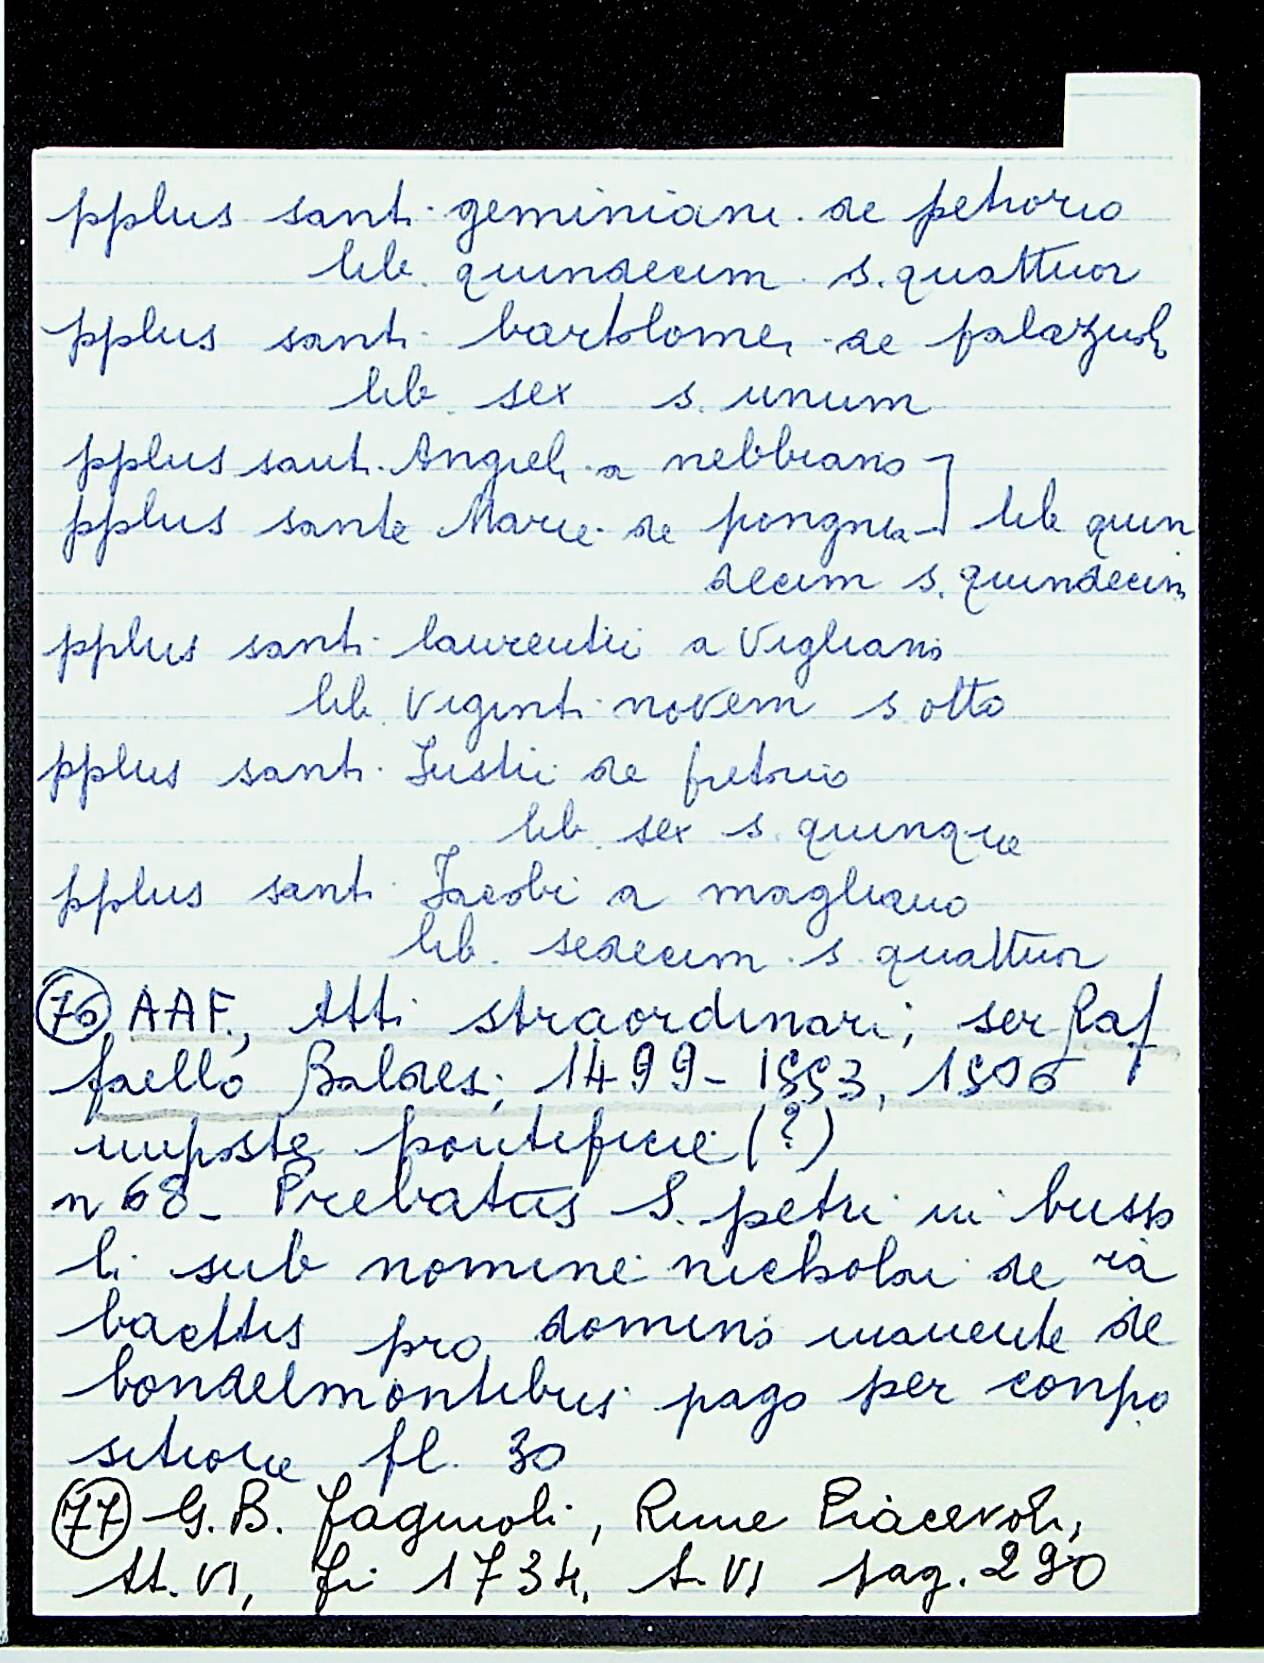 pplus santi geminiani de petrorio
lib. quindecim s. quattuor
pplus santi bartolomei de palazuoli
lib. sex s. unum
pplus santi Angieli a nebbiano
pplus sante Marie de pongna lib quin
decim s. quindecim
pplus santi laurentii a Vigliano
lib. viginti novem s otto
pplus santi Justii de
lib. sex s. quinque
pplus santi Jacobi a magliano
lib. sedecim s. quattuor
76 AAF., Atti straordinari; ser Raf
faello Baldesi; 1499-1553, 1506
imposte pontificie (?)
n 68- Prebatus S. petri in busso
li sub nomine nicholai de ra
bacttis pro domino manente de
bondelmontibus pago per conpo
sitione fl. 30
77 G.B. Fagiuoli, Rime Piacevoli,
Fi 1734, t. VI pag. 290